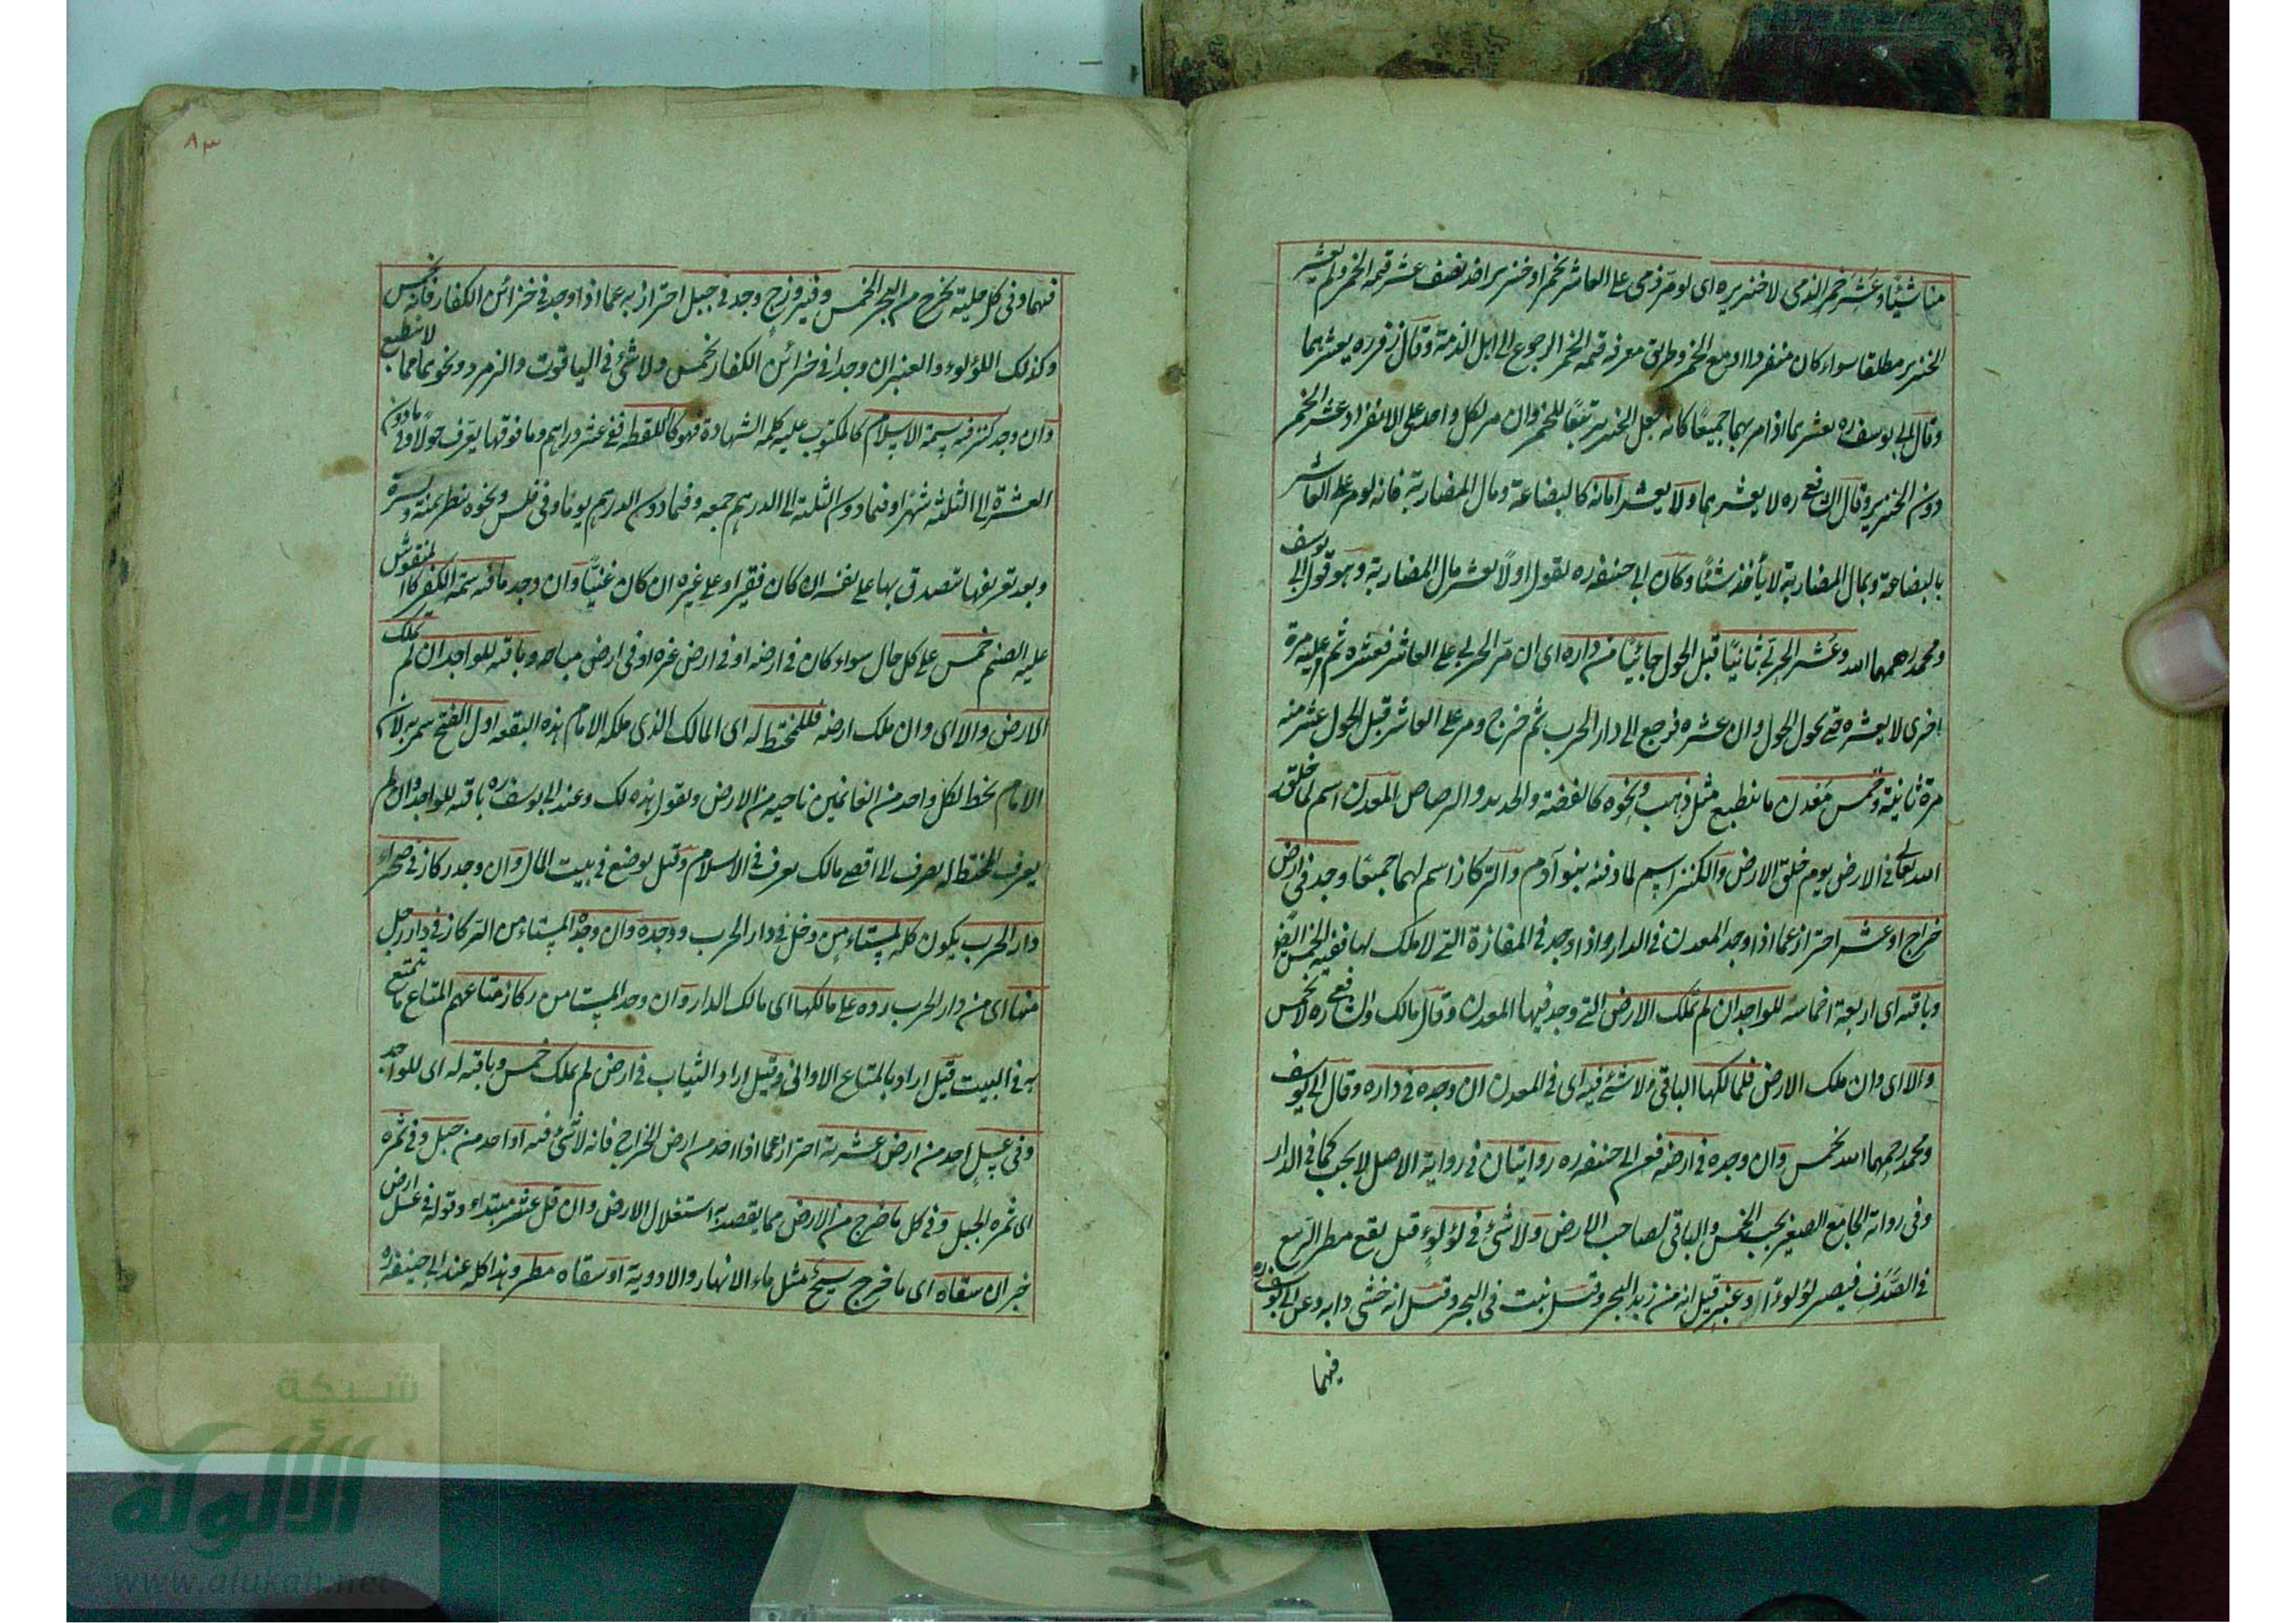 منا شيئا وعشر خمر الذمي لا خنزيره اى لو مر ذمى على العاشر بخمر او خنزير اخذ نصف عشر قيمة الخمر ولم يعشر
الخنزير مطلقا سواء كان منفردا او مع الخمر وطريق معرفة قيمة الخمر الرجوع الى اهل الذمة وقال زفر ره يعشرهما
وقال ابى يوسف ره يعشرهما اذا مر بهما جميعا كانه جعل الخنزير تبعا للخمر وان مر لكل واحد على الانفراد عشر الخمر
دون الخنزير وقال الشافعى ره لا يعشرهما ولا يعشر امانة كالبضاعة ومال المضاربة فانه لو مر على العاشر
بالبضاعة وبمال المضاربة لا يأخذ شيئا وكان ابى حنيفه ره يقول اولا يعشر مال المضاربة وهو قول ابى يوسف
ومحمد رحمهما الله وعشر الحربى ثانيا قبل الحول جائيا من داره اى ان مر الحربى على العاشر فعشره ثم مر عليه مرة
اخرى لا يعشره حتى يحول الحول وان عشره فرجع الى دار الحرب ثم خرج ومر على العاشر قبل الحول عشر منه
مرة ثانية وخمس معدن ما ينطبع مثل ذهب ونحوه كالفضة والحديد والرصاص المعدن اسم لما خلق
الله تعالى فى الارض يوم خلق الارض والكنز اسم لما دفنه بنو آدم والركاز اسم لهما جميعا وجد فى ارض
خراج او عشر احتراز عما اذا وجد المعدن فى الدار واذا وجد فى المفازة التى لا ملك لها ففيه الخمس ايضا
وباقيه اى اربعة اخماسه للواجد ان لم تملك الارض التى وجد فيها المعدن وقال مالك والشافعى ره لا يخمس
والا اى وان ملك الارض فلمالكها الباقى ولا شئ فيه اى فى المعدن ان وجده فى داره وقال ابى يوسف
ومحمد رحمهما الله يخمس وان وجده فى ارضه فعن ابى حنيفه ره روايتان فى رواية الاصل لا يجب كما فى الدار
وفى رواية الجامع الصغير يجب الخمس والباقى لصاحب الارض ولا شئ فى لؤلوء قيل يقع مطر الربيع
فى الصدف فيصير لؤلوءا وعنبر قيل انه من زبد البحر وقيل نبت فى البحر وقيل انه خثى دابه وعن ابى يوسف ره
فيهما
٨٣
فيهما وفى كل حلية تخرج من البحر الخمس وفيروزج وجد فى جبل احتراز به عما اذا وجد فى خزائن الكفار فانه يخمس
وكذلك اللؤلوء والعنبر ان وجدا فى خزائن الكفار يخمس ولا شئ فى الياقوت والزمرد ونحوهما مما لا ينطبع
وان وجد كنز فيه سمة الاسلام كالمكتوب عليه كلمة الشهادة فهو كاللقطه ففى عشر دراهم وما فوقها يعرف حولا وفى ما دون
العشرة الى الثلثه شهرا وفيما دون الثلثة الى الدرهم جمعه وفيما دون الدرهم يوما وفى فلس ونحوه ينظر يمنة ويسرة
وبعد تعريفها يتصدق بها على نفسه ان كان فقيرا وعلى غيره ان كان غنيا وان وجد ما فيه سمة الكفر كالمنقوش
عليه الصنم خمس على كل حال سواء كان فى ارضه او فى ارض غيره او فى ارض مباحه وباقيه للواجد ان لم تملك
الارض والا اى وان ملك ارضه فللمختط له اى المالك الذى ملكه الامام هذه البقعه اول الفتح سمى به لان
الامام يخط لكل واحد من الغانمين ناحيه من الارض ويقول هذه لك وعند ابى يوسف ره باقيه للواجد وان لم
يعرف المختط له يصرف الى اقصى مالك يعرف فى الاسلام وقيل يوضع فى بيت المال وان وجد ركاز فى صحراء
دار الحرب يكون كله لمستاءمن دخل فى دار الحرب ووجده وان وجد المستاءمن الركاز فى دار رجل
منها اى من دار الحرب رده على مالكها اى مالك الدار وان وجد المستامن ركاز متاعهم المتاع ما يتمتع
به فى البيت قيل اراد بالمتاع الاوانى وقيل اراد الثياب فى ارض لم يملك خمس وباقيه له اى للواجد
وفى عسل احد من ارض عشرية احتراز عما اذا اخذ من ارض الخراج فانه لا شئ فيه او احد من جبل وفى ثمره
اى ثمره الجبل وفى كل ما خرج من الارض مما يقصد به استغلال الارض وان قل عشر مبتداء وقوله فى عسل ارض
خبر ان سقاه اى ما خرج سيح مثل ماء الانهار والاودية او سقاه مطر وهذا كله عند ابى حنيفه ره
شبكة
الألوكة
www.alukah.net